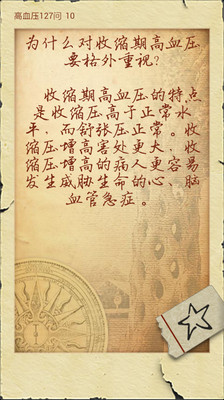 高血压127问 10
为什么对收缩期高血压
要格外重视？
收缩期高血压的特点
是收缩压高于正常水
平，而舒张压正常。收
缩压增高害处更大，收
缩压增高的病人更容易
发生威胁生命的心、脑
血管急症。